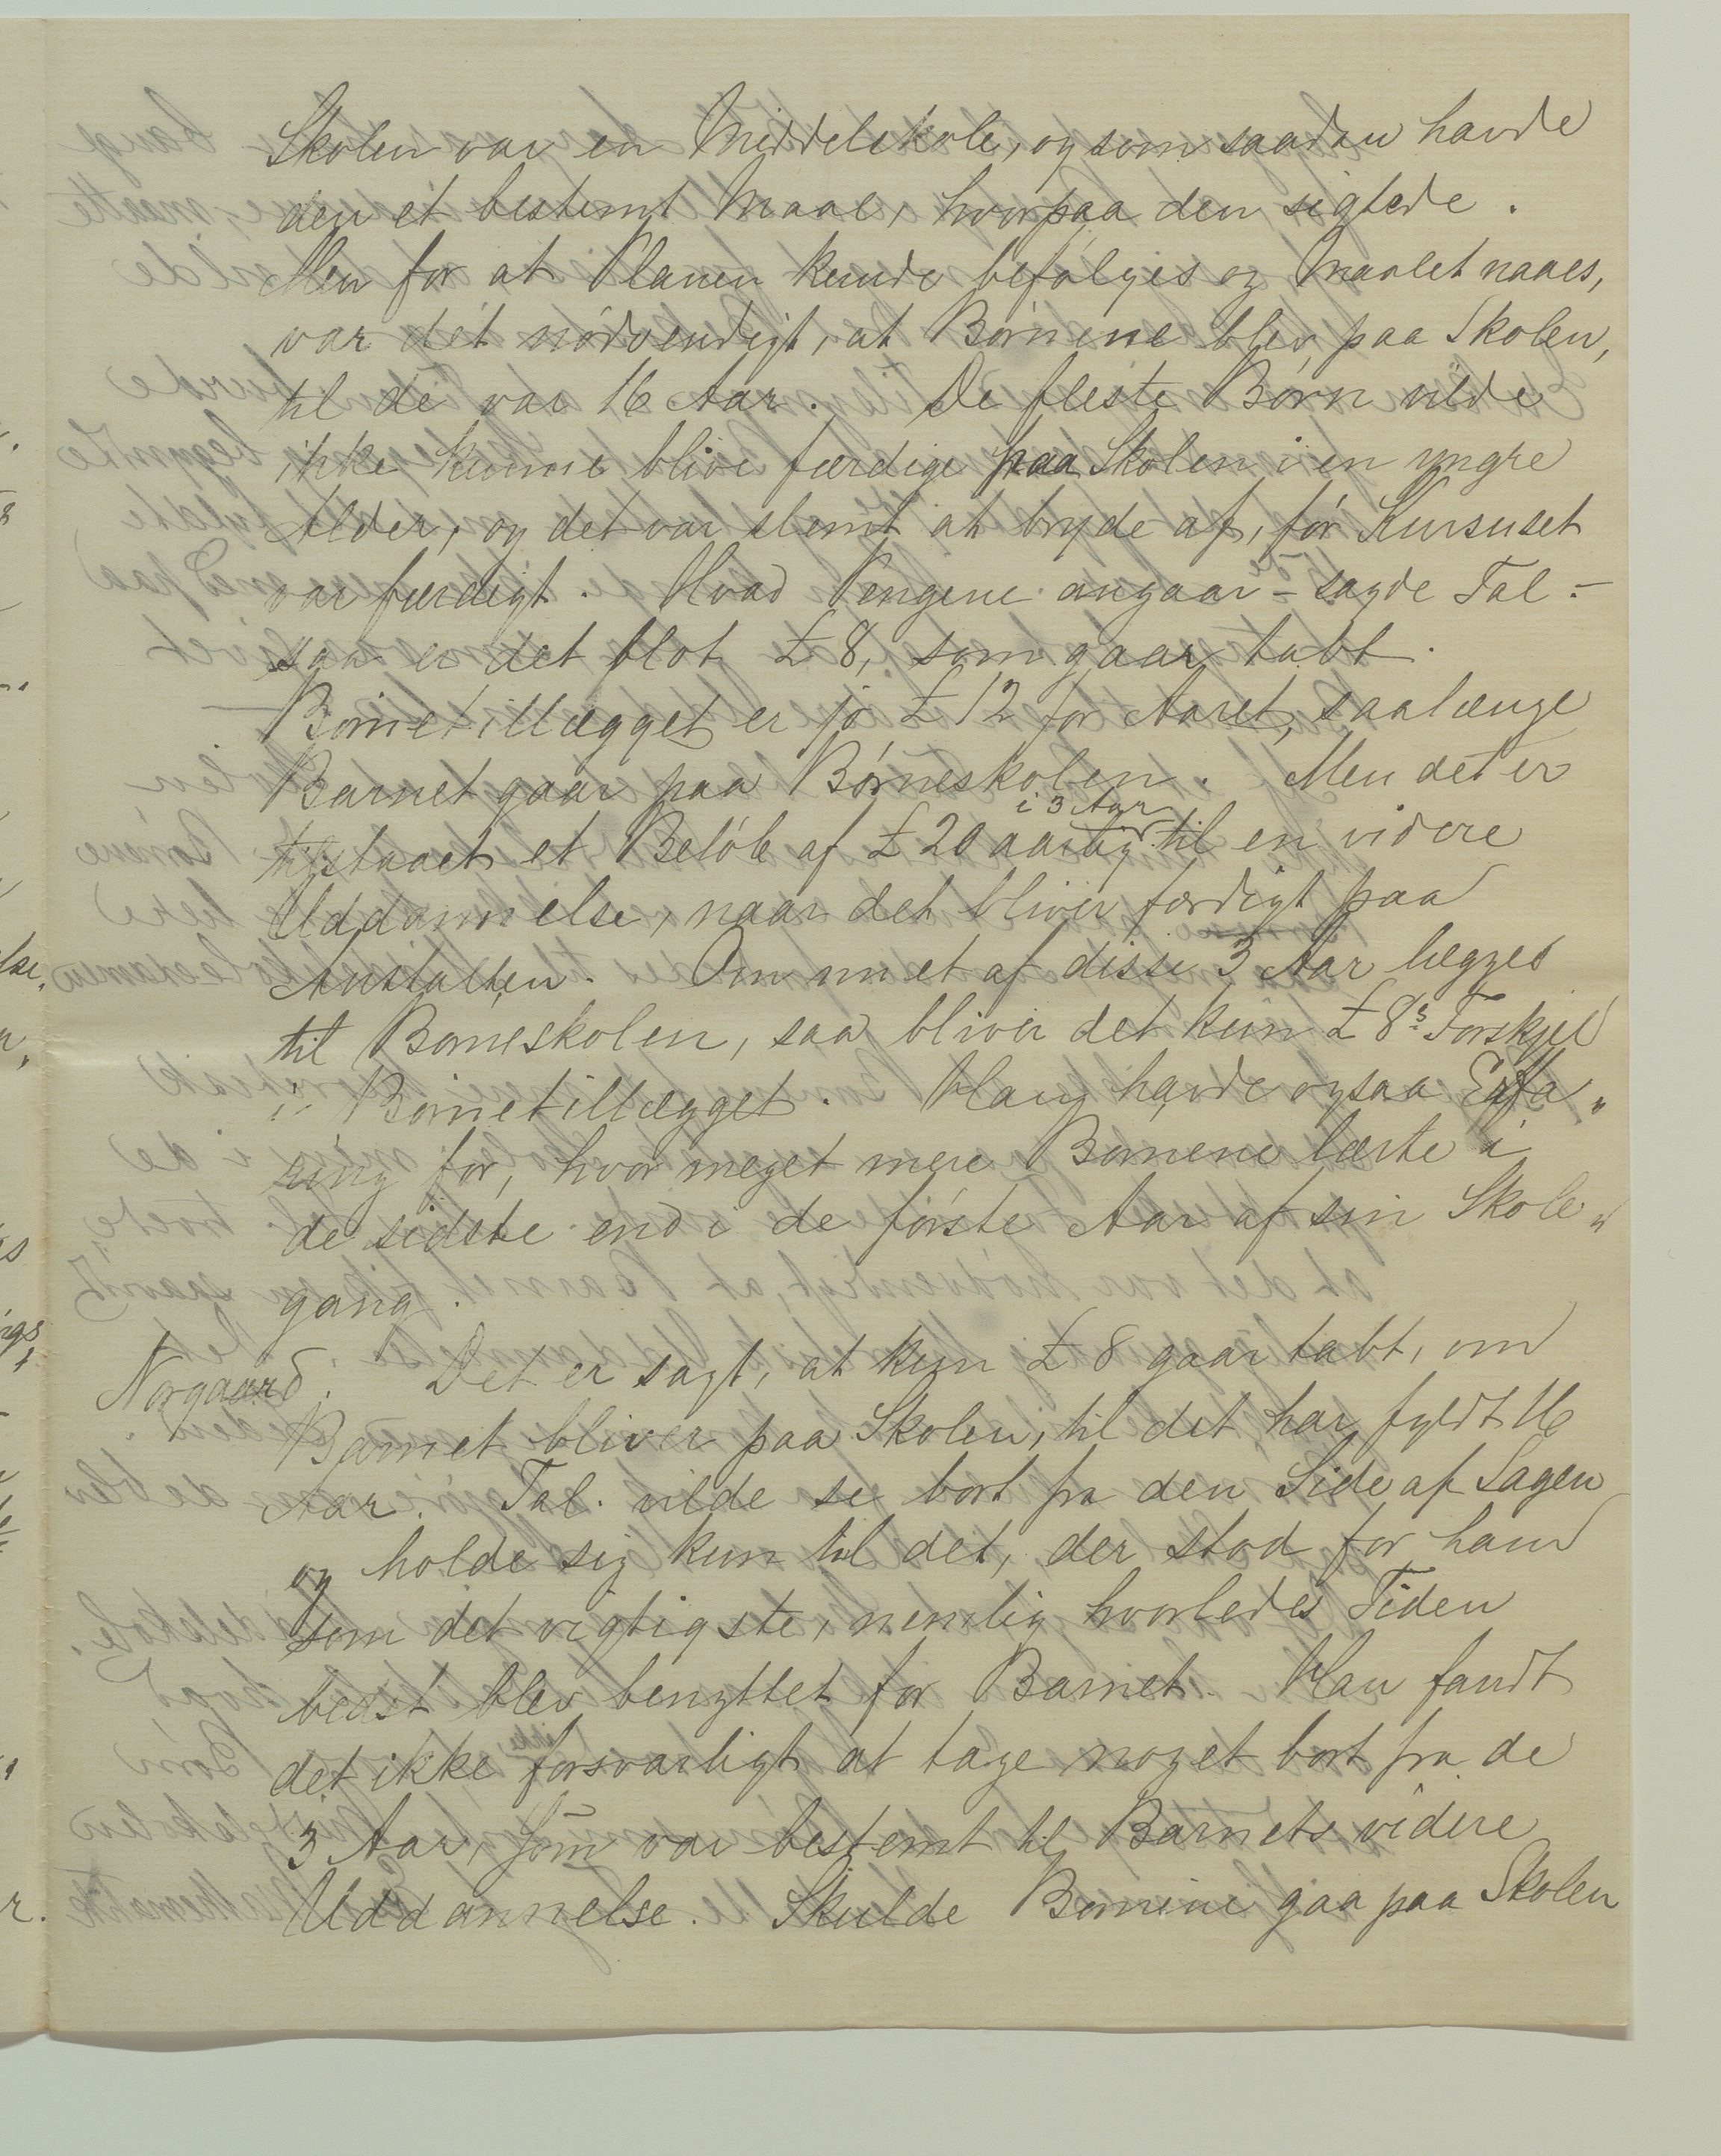 Skolen var en Middelskole, og som saadan havde
den et bestemt Maal, hvorpaa den sigtede.
Men for at Planen kunde befølges og Maalet naaes,
var det nødvendigt, at Børnene blev paa Skolen,
til de var 16 Aar. De fleste Børn vilde
ikke kunne blive færdige paa Skolen i en yngre
Alder, og det var slemt at bryde af, før Kursuset
var færdigt. Hvad Pengene angaar – sagde Tal. –
saa er det blot £ 8, som gaar tabt.
Børnetillægget er jo £ 12 for Aaret, saalænge
Barnet gaar paa Børneskolen. Men det er
i 3 Aar
tilstaaet et Beløb af £ 20 aarlig til en videre
Uddannelse, naar det bliver færdigt paa
Anstalten. Om nu et af disse 3 Aar lægges
til Børneskolen, saa bliver det kun £ 8 s Forskjel
i Børnetillægget. Han havde ogsaa Erfa„
ring for, hvor meget mere Børnene lærte i
de sidste end i de første Aar af sin Skole„
gang.
Nørgaard. Det er sagt, at kun £ 8 gaar tabt, om
Barnet bliver paa Skolen, til det har fyldt 16
Aar. Tal. vilde se bort fra den Side af Sagen
og holde sig kun til det, der stod for ham
som det vigtigste, nemlig hvorledes Tiden
bedst blev benyttet for Barnet. Han fandt
det ikke forsvarligt at tage noget bort fra de
3 Aar, som var bestemt til Barnets videre
Uddannelse. Skulde Børnene gaa paa Skolen